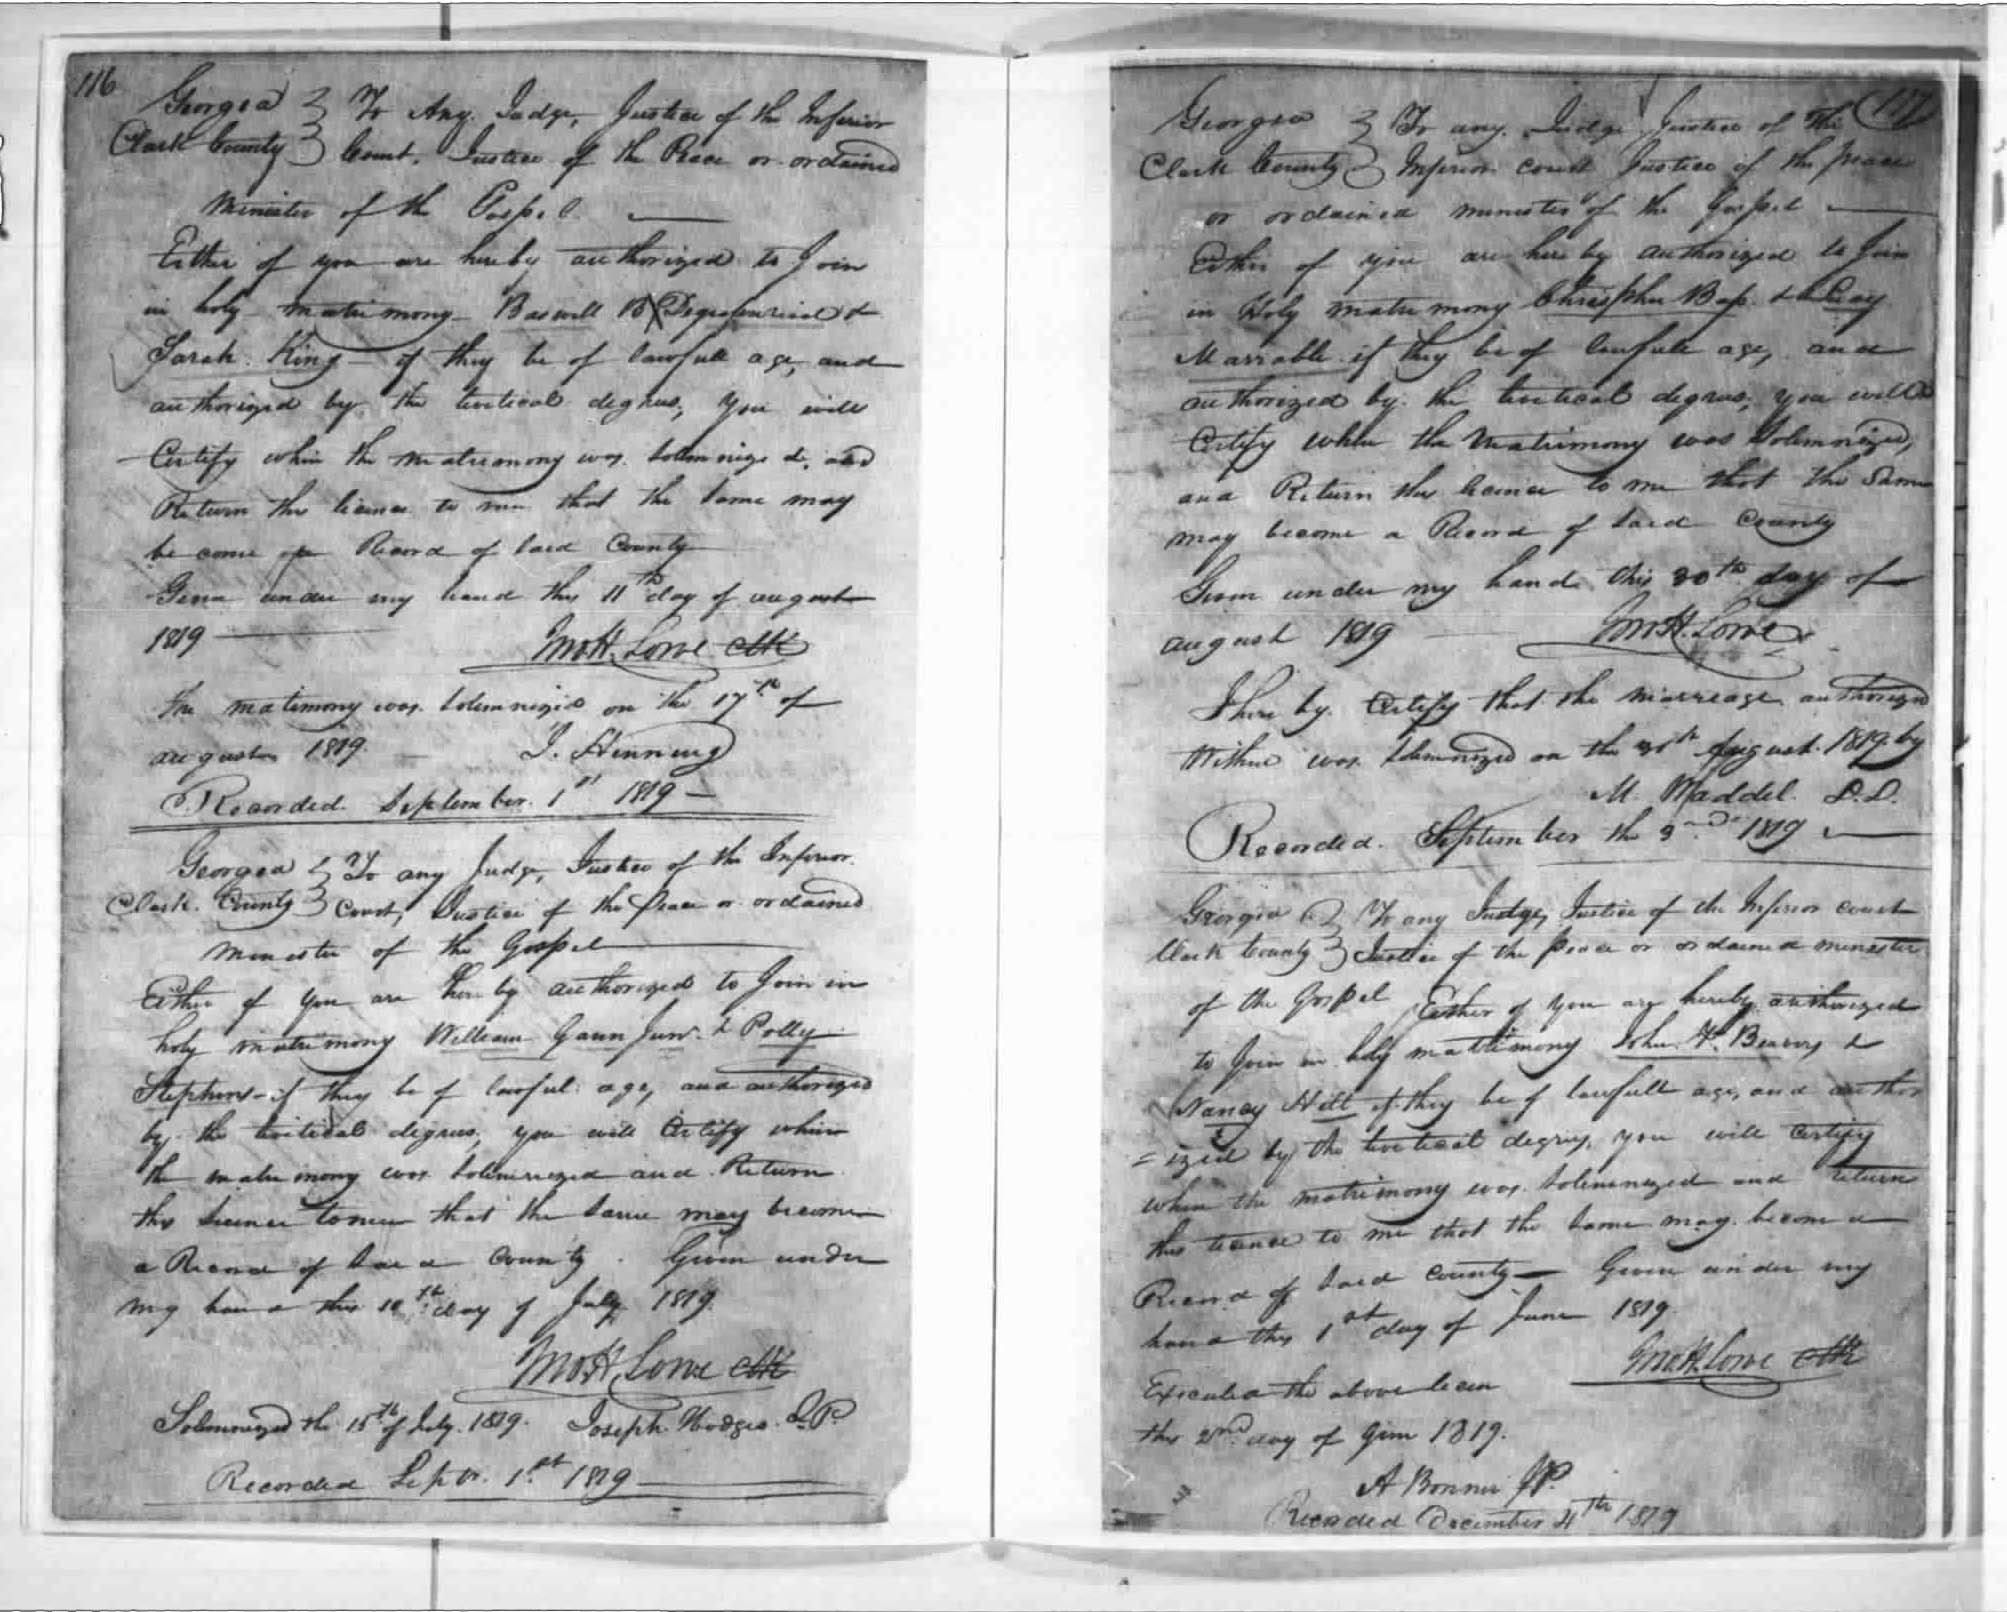 116
Georgia } To Any Judge, Justice of the Inferior
Clark County } Court, Justice of the Peace or ordained
minister of the Gospel
Either of you are hereby authorized to Join
in holy matrimony Baswell B &
Sarah King if they be of lawfull age, and
authorized by the levitical degrees, you will
Certify when the matrimony was Solemnized, and
Return this licence to me that the Same may
be come a Record of Said County
Given under my hand this 11th day of august
1819 Jno H. Lowe Clk
the matimony was Solemnized on the 17th of
august 1819. J. Henning
Recorded September 1st 1819
Georgia } To any Judge, Justice of the Inferior
Clark County } Court, Justice of the Peace or ordained
minister of the Gospel
Either of you are hereby authorized to Join in
holy matrimony William Gann Junr. & Polly
Stephens if they be of lawful age, and authorized
by the levitical degrees, you will Certify when
the matrimony was Solemnized and Return
this licence to me that the Same may become
a Record of Said County. Given under
my hand this 10th day of July 1819.
Jno H. Lowe Clk
Solemnized the 15th of July 1819. Joseph Hodges J.P.
Recorded Septr. 1st 1819
117
Georgia } To any Judge, Justice of the
Clark County } Inferior court Justice of the peace
or ordained minister of the Gospel
Either of you are hereby authorized to Join
in Holy matrimony &
Marrable if they be of lawfull age, and
authorized by the levitical degrees, you will
Certify when the Matrimony was Solemnized,
and Return this licence to me that the Same
may become a Record of Said County
Given under my hand this 30th day of
august 1819 Jno H. Lowe
I here by Certify that the marreage authorized
within was Solemnized on the 30th August 1819 by
M. Waddel D.D.
Recorded September the 3rd 1819
Georgia } To any Judge, Justice of the Inferior court
Clark County } Justice of the peace or ordained minester
of the Gospel Either of you are hereby authorized
to Join in holy matrimony John H. Beavers &
Nancy Hill if they be of lawfull age, and author
=ized by the levitical degrees, you will Certify
when the matrimony was Solemnized and return
this licence to me that the Same may become a
Record of Said County Given under my
hand this 1st day of June 1819.
Jno H. Lowe Clk
Executed the above licen
this 2nd day of June 1819.
A Bonner JP.
Recorded December 4th 1819